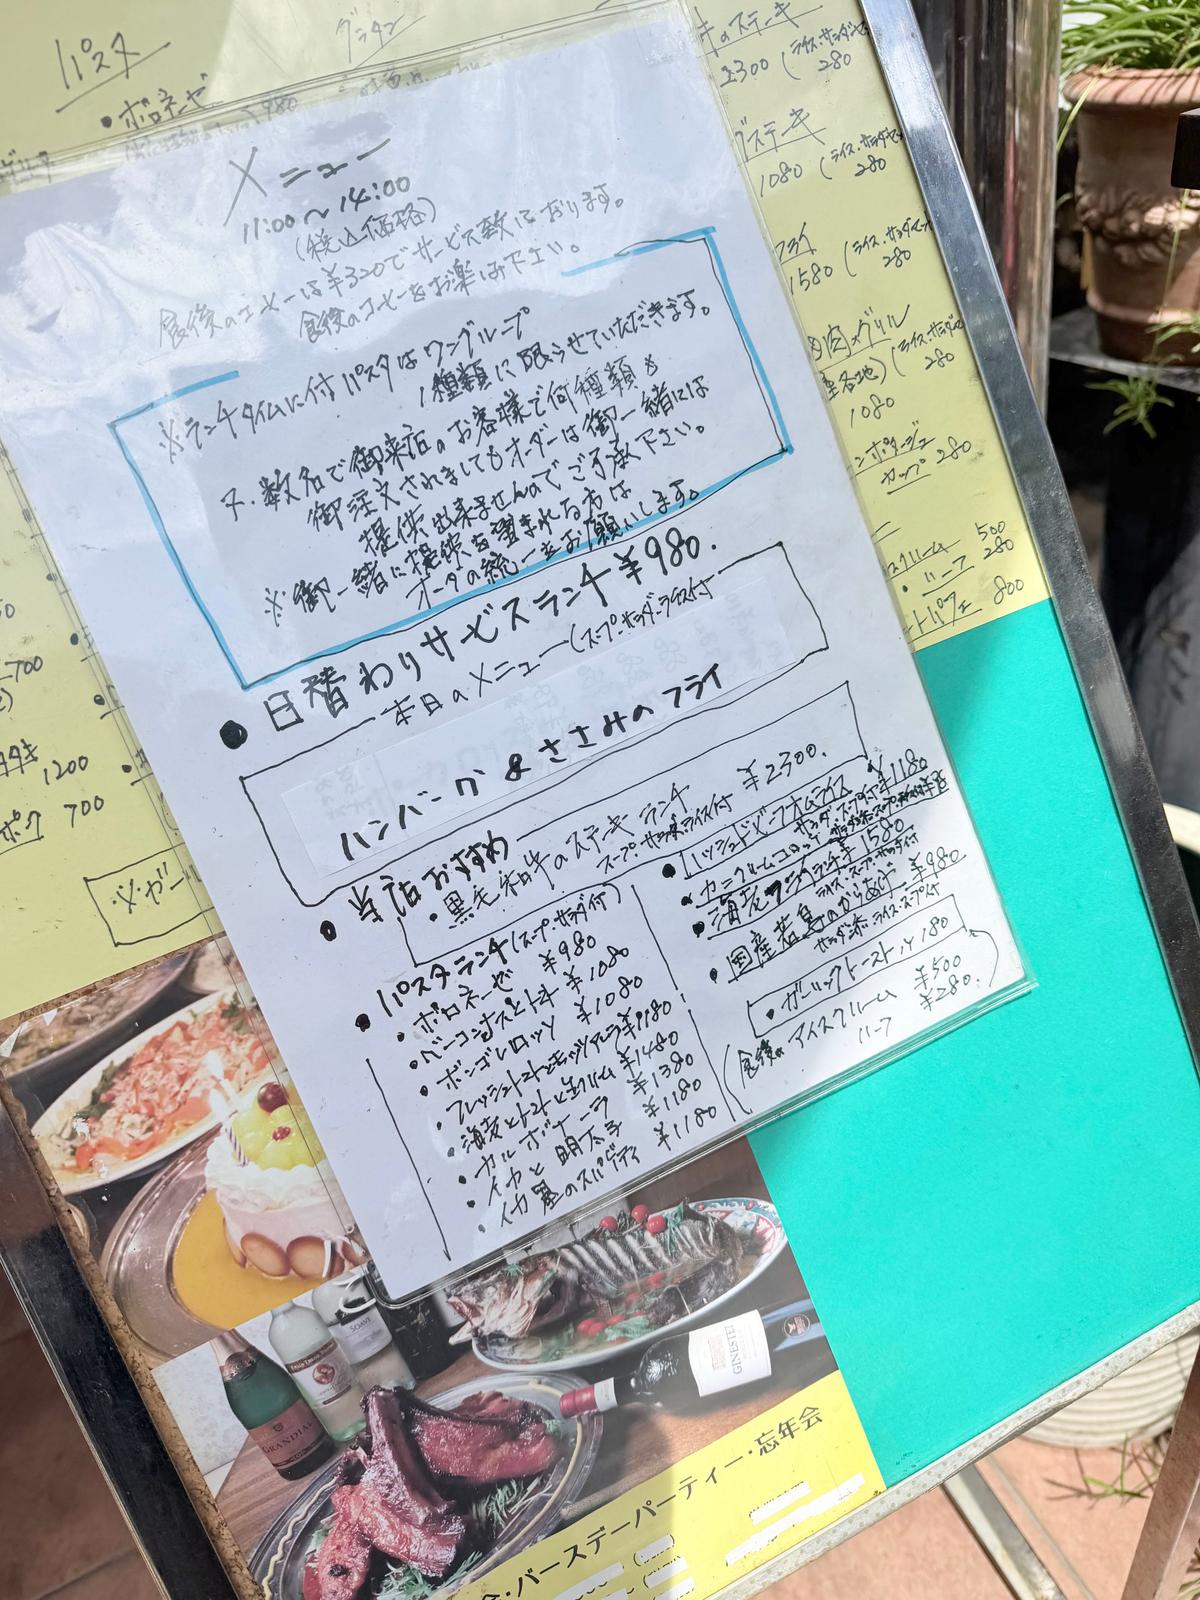 メニュー
11:00〜14:00
(税込価格)
食後のコーヒーは¥320でサービス致しております。
食後のコーヒーをお楽しみ下さい。
※ランチタイムに付パスタはワングループ
1種類に限らせていただきます。
又、数名で御来店のお客様で何種類も
御注文されましてもオーダーは御一緒には
提供出来ませんのでご了承下さい。
※御一緒に提供を望まれる方は
オーダの統一をお願いします。
●日替わりサービスランチ¥980.
本日のメニュー(スープ・サラダ・ライス付)
ハンバーグ&ささみのフライ
●当店おすすめ
・黒毛和牛のステーキランチ ¥2300.
スープ・サラダ・ライス付
●パスタランチ(スープ・サラダ付)
・ボロネーゼ ¥980
・ベーコンナスとトマト ¥1080
・ボンゴレロッソ ¥1080
・フレッシュトマトとモッツアレラ¥1180
・海老とトマトと生クリーム ¥1480
・カルボナーラ ¥1380
・イカと明太子 ¥1180
・イカ墨のスパゲティ ¥1180
●ハッシュドビーフオムライス
サラダ・スープ付¥1180
・カニクリームコロッケ
●海老フライランチ¥1580
ライス・スープ・サラダ付
・国産若鳥のからあげ ¥980
サラダ添・ライス・スープ付
・ガーリックトースト ¥180
(食後のアイスクリーム ¥500
ハーフ ¥280
パスタ
・ボロネーゼ
980
グラタン
のステーキ
(ライス・サラダセット
280
ステーキ
1080 (ライス・サラダセット
280
フライ
1580 (ライス・サラダセット
280
肉グリル
(ライス・サラダセット
280
1080
カップ 280
クリーム 500
・ハーフ 280
パフェ 800
700
1200
700
※ガー
GRANDIAL
SOAVE
GINESTET
・バースデーパーティー・忘年会